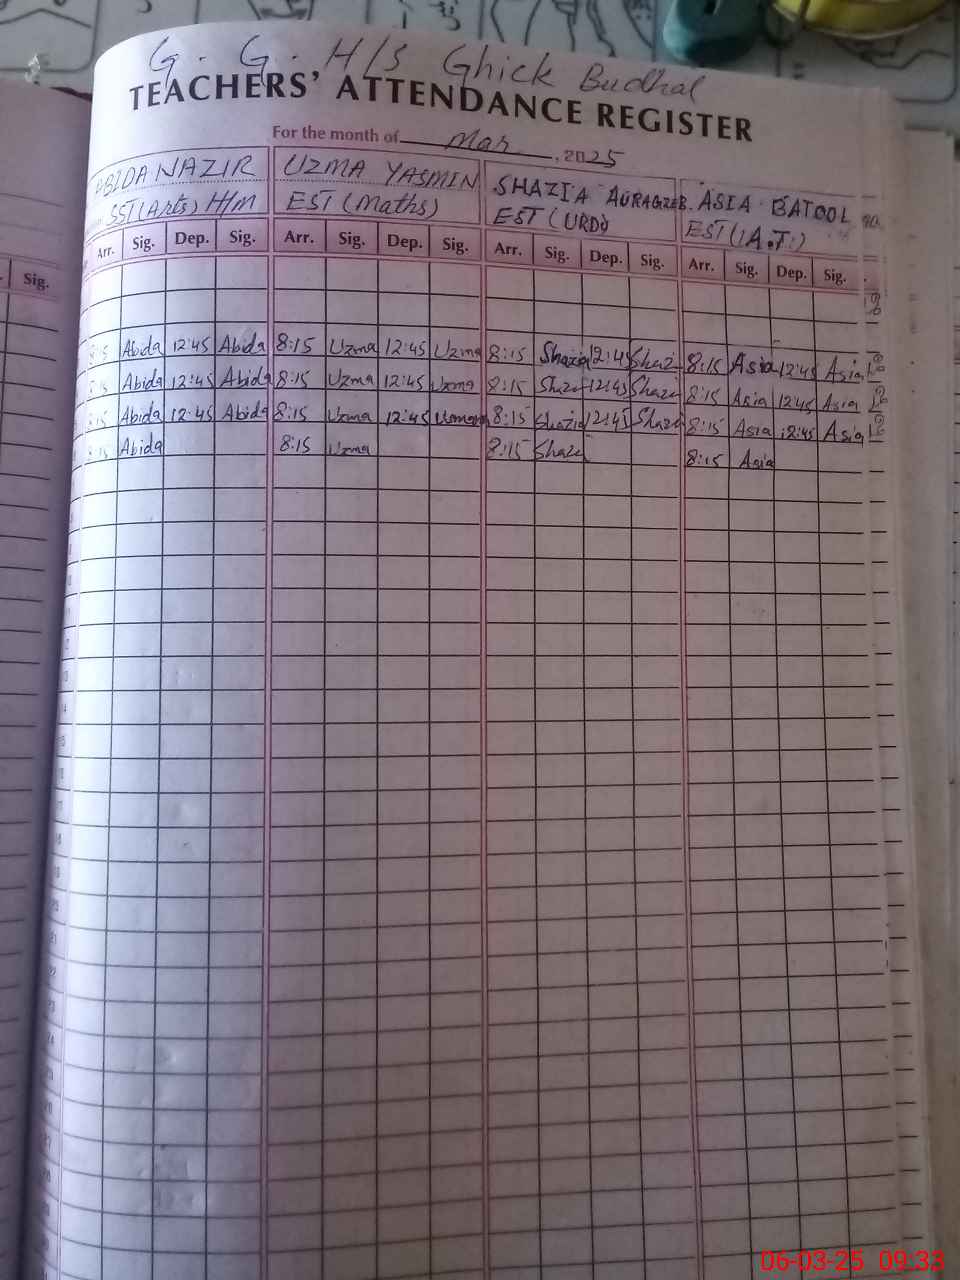 G. G. H/S Ghick Budhal
TEACHERS' ATTENDANCE REGISTER
For the month of Mar, 2025
ABIDA NAZIR UZMA YASMIN SHAZIA AURAGZEB ASIA BATOOL
SST (Arts) H/M EST (Maths) EST (URDU) EST (A.T.)
Sig. Arr. Sig. Dep. Sig. Arr. Sig. Dep. Sig. Arr. Sig. Dep. Sig. Arr. Sig. Dep. Sig.
8:15 Abida 12:45 Abida 8:15 Uzma 12:45 Uzma 8:15 Shazia 12:45 Shazi 8:15 Asia 12:45 Asia
8:15 Abida 12:45 Abida 8:15 Uzma 12:45 Uzma 8:15 Shazi 12:45 Shazi 8:15 Asia 12:45 Asia
8:15 Abida 12:45 Abida 8:15 Uzma 12:45 8:15 Shazia 12:45 Shazi 8:15 Asia 12:45 Asia
8:15 Abida 8:15 Uzma 8:15 Shazi 8:15 Asia
12
13
14
15
21
23
24
06-03-25 09:33